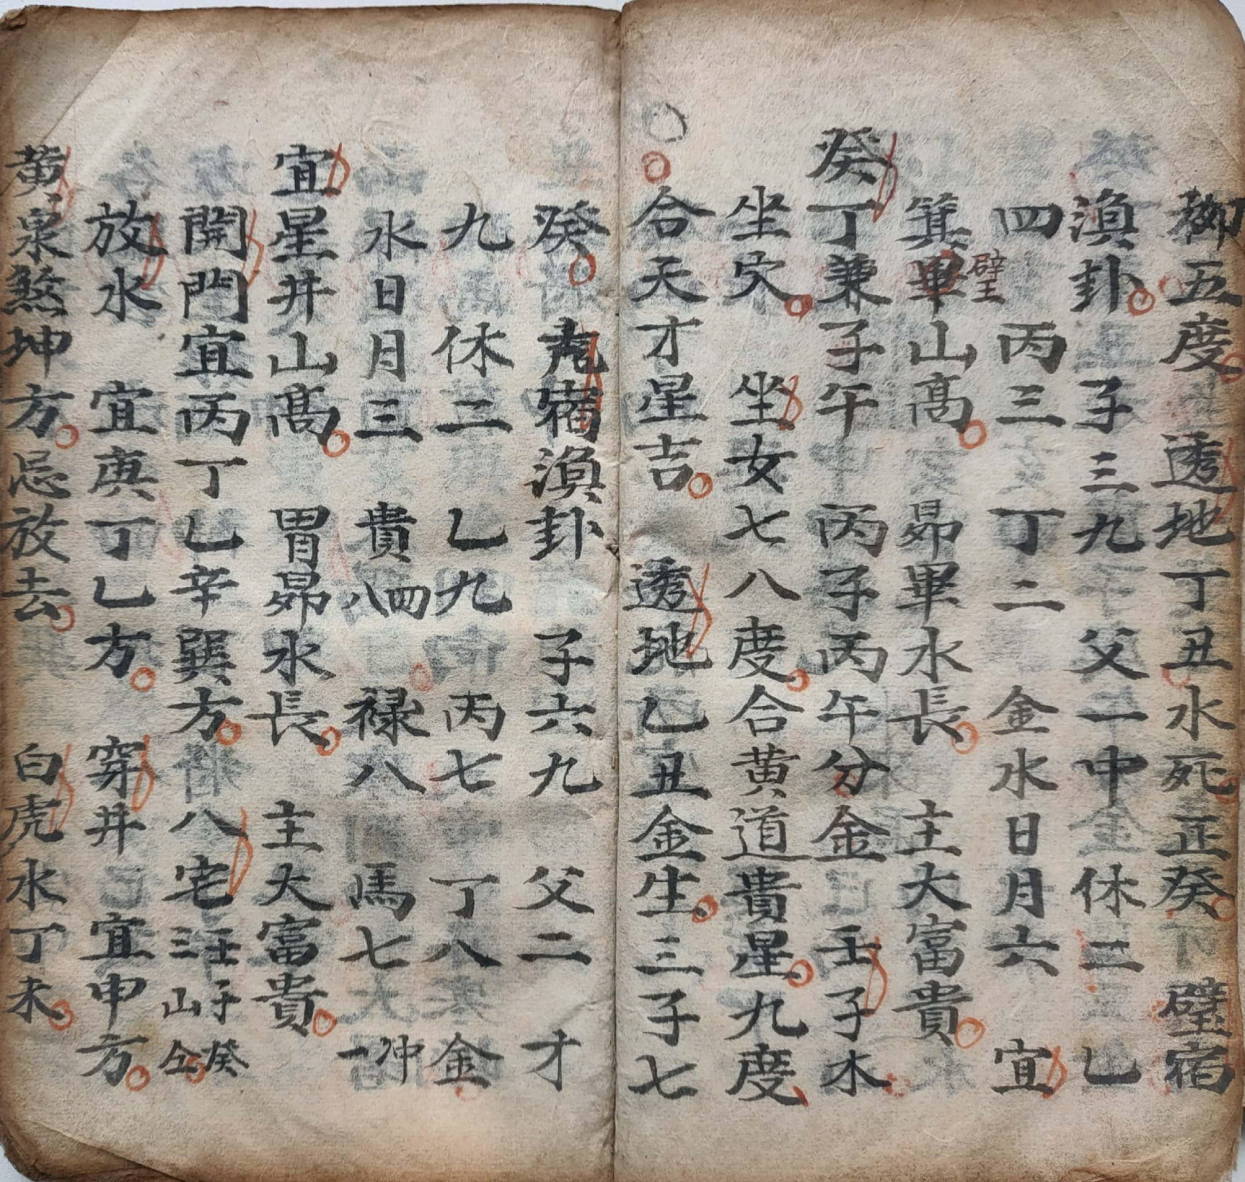 柳五度 透地丁丑水死正癸 壁宿
演卦 子三九 父一中 休二 乙
四 丙三 丁二 金水日月六 宜
箕畢山高 昴畢水長 主大富貴
壁王
癸丁兼子午 丙子丙午分金 壬子木
坐穴 坐女七八度合黄道貴星九度
合天才星吉 透地乙丑金生三子七
癸 宿演卦 子六九 父二 才
九 休二 乙九 丙七 丁八 金
水日月三 貴四八 禄八 馬七 冲一
宜星井山髙 胃昴水長 主大富貴
開門宜丙丁乚辛巽方 八宅 子癸 三山
放水 宜庚丁乚方 穿井 宜申方
黄泉煞坤方忌放去 白虎水丁未